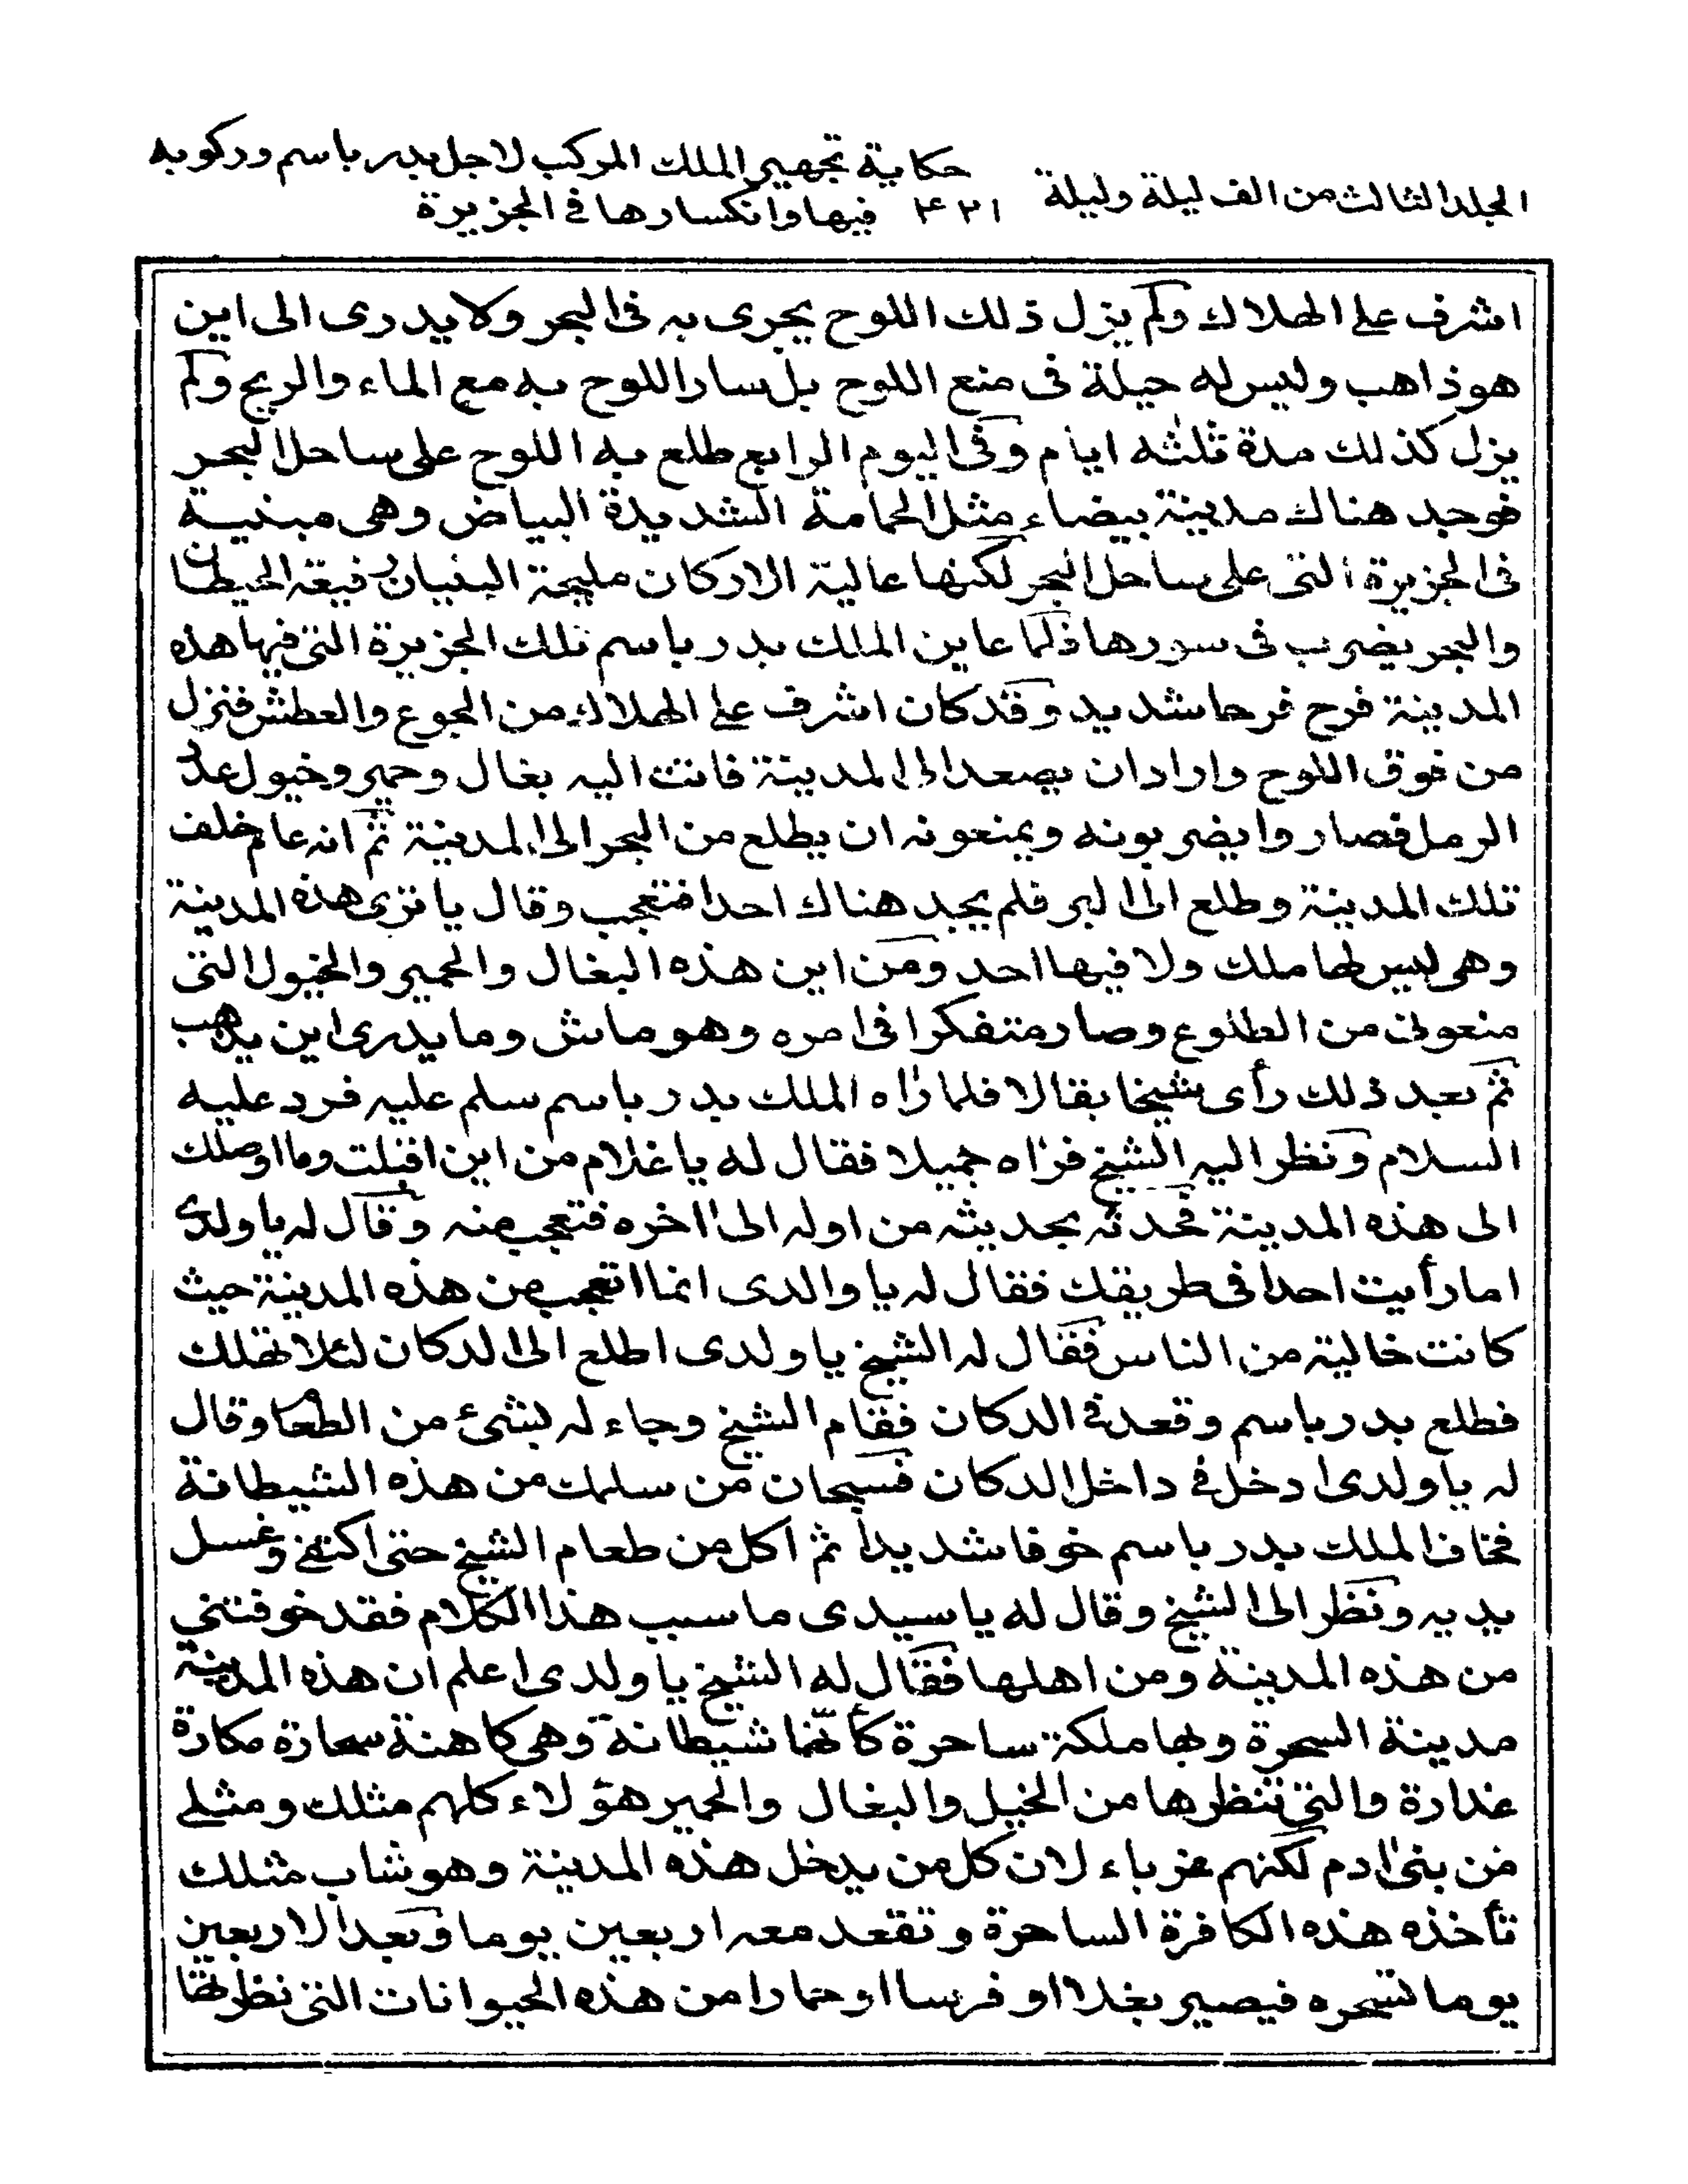 حكاية تجهيز الملك المركب لاجل بدر باسم وركوبه
المجلد الثالث من الف ليلة وليلة ٤٢١ فيها وانكسارها فى الجزيرة
اشرف على الهلاك ولم يزل ذلك اللوح يجرى به فى البحر ولا يدرى الى اين
هو ذاهب وليس له حيلة فى منع اللوح بل سار اللوح به مع الماء والريح ولم
يزل كذلك مدة ثلثه ايام وفى اليوم الرابع طلع به اللوح على ساحل البحر
فوجد هناك مدينة بيضاء مثل الحمامة الشديدة البياض وهى مبنية
فى الجزيرة التى على ساحل البحر لكنها عالية الاركان مليحة البنيان رفيعة الحيطان
والبحر يضرب فى سورها فلما عاين الملك بدر باسم تلك الجزيرة التى فيها هذه
المدينة فرح فرحا شديد وقد كان اشرف على الهلاك من الجوع والعطش فنزل
من فوق اللوح واراد ان يصعد الى المدينة فاتت اليه بغال وحمير وخيول عدد
الرمل فصاروا يضربونه ويمنعونه ان يطلع من البحر الى المدينة ثم انه عام خلف
تلك المدينة وطلع الى البر فلم يجد هناك احدا فتعجب وقال يا ترى هذه المدينة
وهى ليس لها ملك ولا فيها احد ومن اين هذه البغال والحمير والخيول التى
منعونى من الطلوع وصار متفكرا فى امره وهو ماش وما يدرى اين يذهب
ثم بعد ذلك رأى شيخا بقالا فلما رٰاه الملك بدر باسم سلم عليه فرد عليه
السلام ونظر اليه الشيخ فرٰاه جميلا فقال له يا غلام من اين اقبلت وما اوصلك
الى هذه المدينة فحدثه بحديثه من اوله الى اٰخره فتعجب منه وقال له يا ولدى
اما رأيت احدا فى طريقك فقال له يا والدى انما اتعجب من هذه المدينة حيث
كانت خالية من الناس فقال له الشيخ يا ولدى اطلع الى الدكان لئلا تهلك
فطلع بدر باسم وقعد فى الدكان فقام الشيخ وجاء له بشئ من الطعام وقال
له يا ولدى ادخل فى داخل الدكان فسبحان من سلمك من هذه الشيطانة
فخاف الملك بدر باسم خوفا شديدا ثم اكل من طعام الشيخ حتى اكتفى وغسل
يديه ونظر الى الشيخ وقال له يا سيدى ما سبب هذا الكلام فقد خوفتنى
من هذه المدينة ومن اهلها فقال له الشيخ يا ولدى اعلم ان هذه المدينة
مدينة السحرة وبها ملكة ساحرة كأنها شيطانة وهى كاهنة سحارة مكارة
غدارة والتى تنظرها من الخيل والبغال والحمير هؤلاء كلهم مثلك ومثلى
من بنى اٰدم لكنهم غرباء لان كل من يدخل هذه المدينة وهو شاب مثلك
تأخذه هذه الكافرة الساحرة وتقعد معه اربعين يوما وبعد الاربعين
يوما تسحره فيصير بغلا او فرسا او حمارا من هذه الحيوانات التى نظرتها